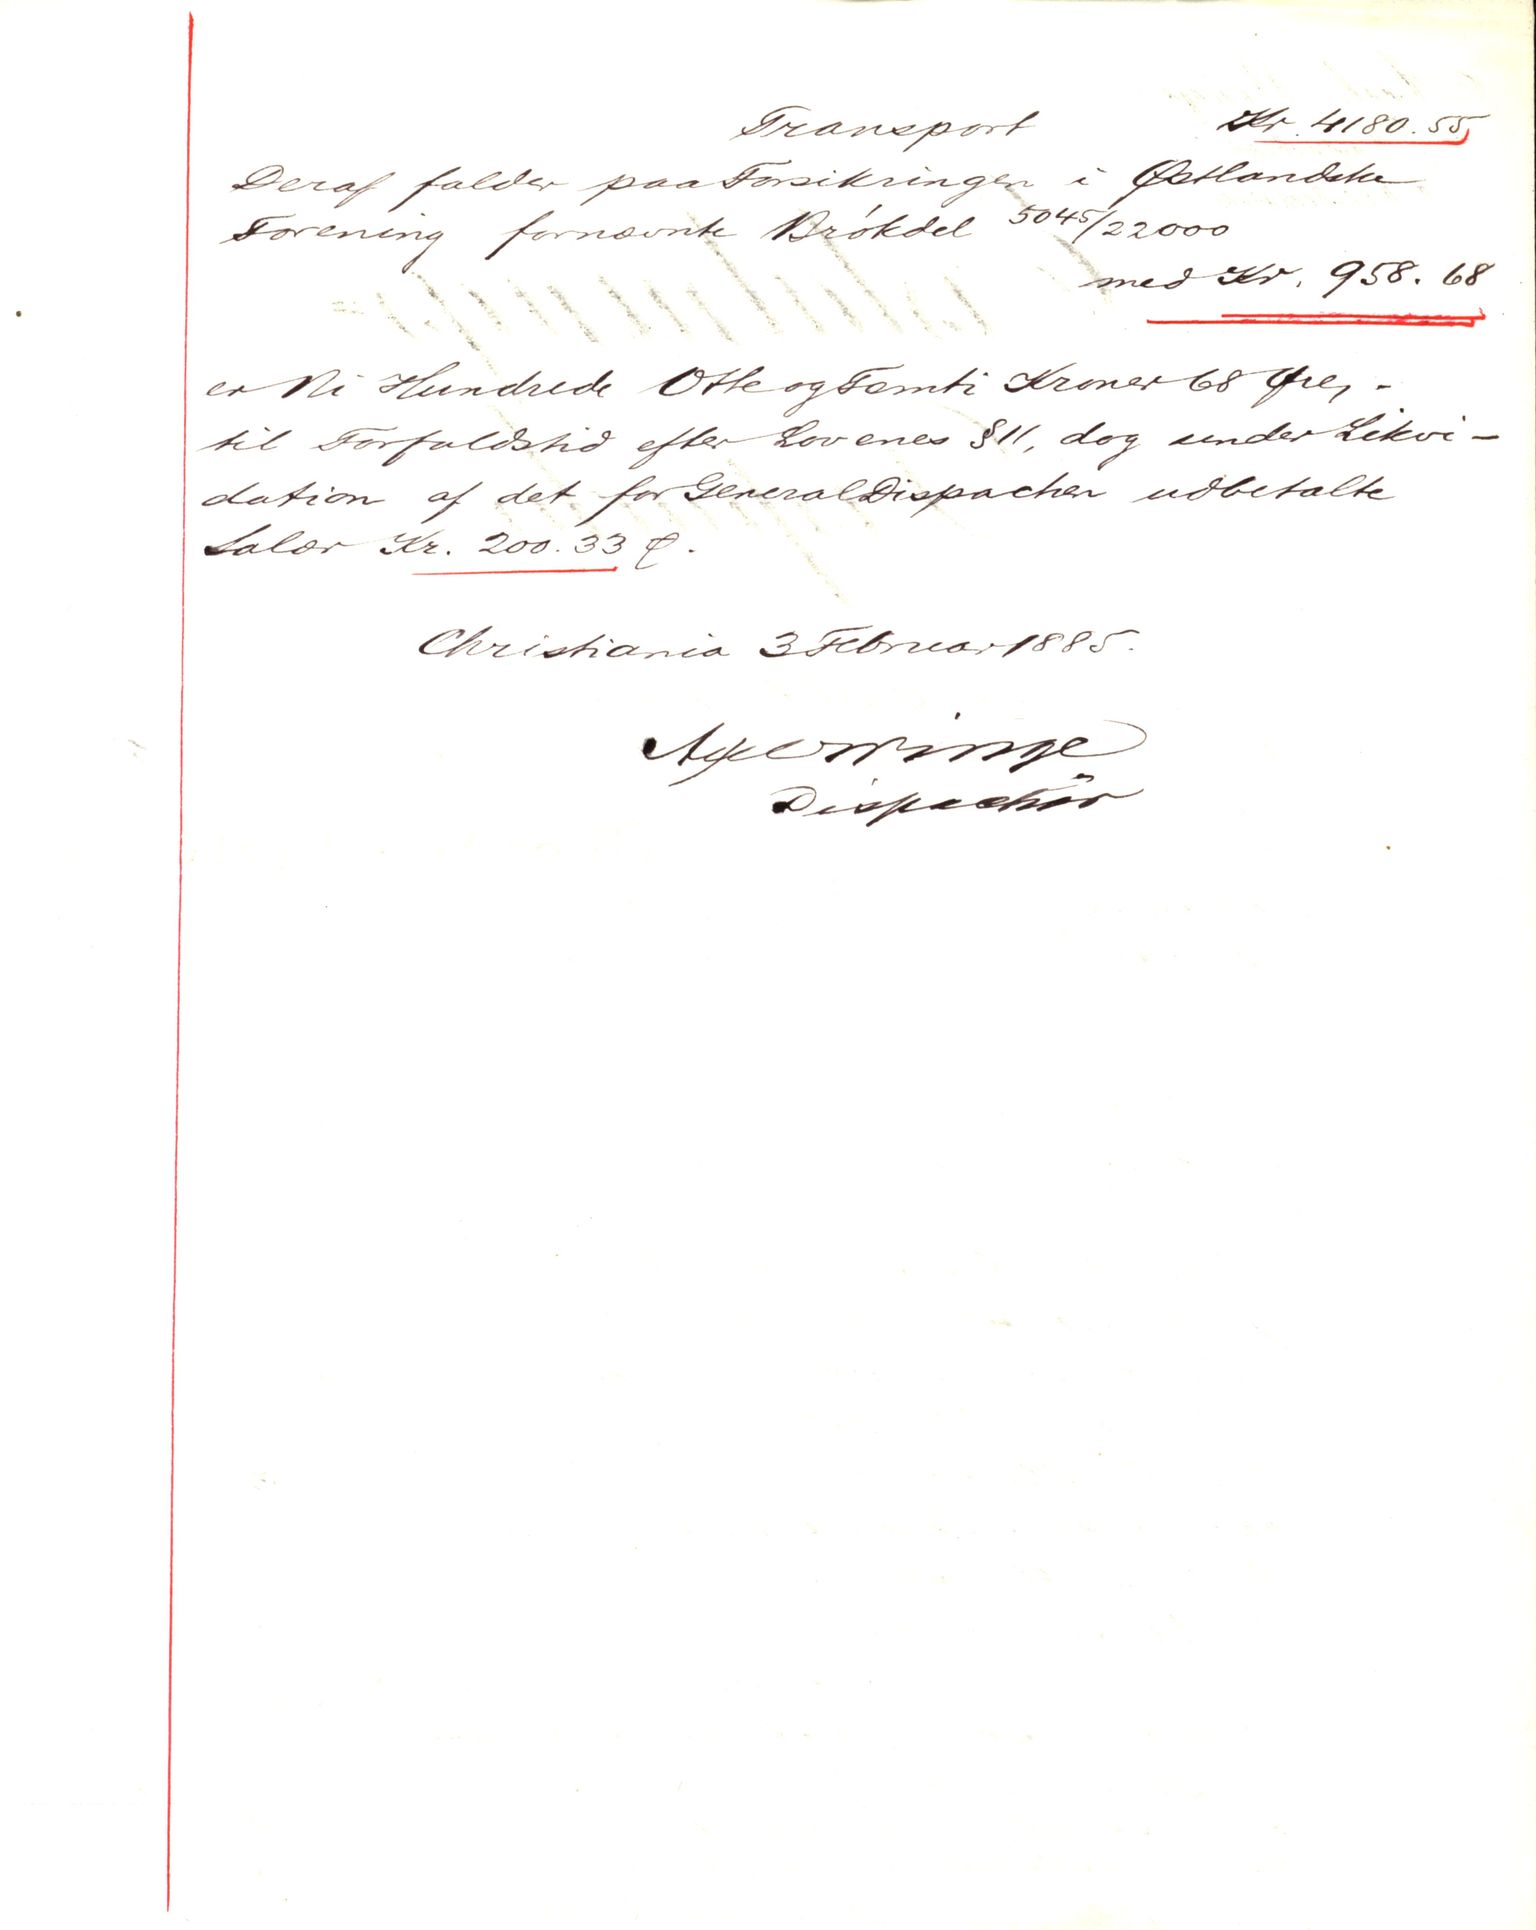 Transport Kr. 4180.55
Deraf falder paa Forsikringen i Østlandske
Forening fornævnte Brökdel 5045/22000
med Kr. 958.68
er Ni Hundrede Otte og Femti Kroner 68 Øre, -
til Forfaldstid efter Lovenes § 11, dog under Likvi-
dation af det for General Dispachen udbetalte
Salær Kr. 200.33
Christiania 3 Februar 1885.
Axel Winge
Dispachör